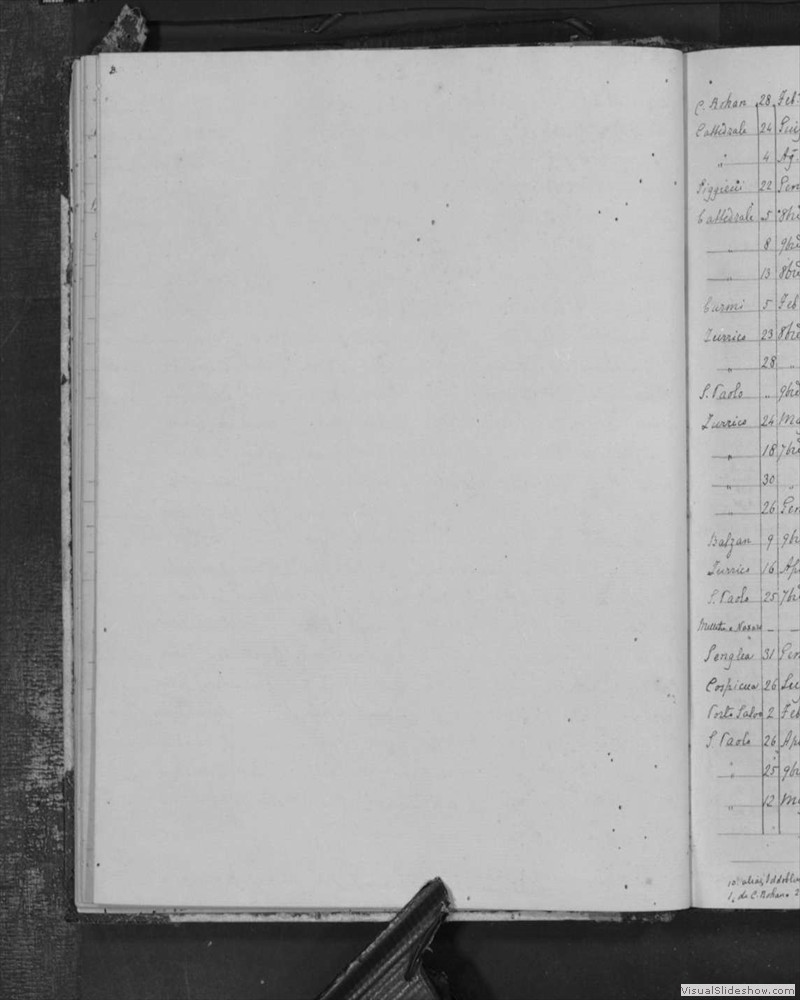 C. Rohan 28 Feb
Cattedrale 24 Giug
" 4 Ag
Siggieui 22 Gen
Cattedrale 5 8bre
" 8 9bre
" 13 8bre
Curmi 5 Feb
Zurrico 23 8bre
" 28 "
S. Paolo " 9bre
Zurrico 24 Mag
" 18 7bre
" 30 "
" 26 Gen
Balzan 9 9br
Zurrico 16 Ap
S. Paolo 25 7br
Senglea 31 Gen
Cospicua 26 Lu
Porto Salvo 2 Feb
S. Paolo 26 Ap
" 25 9br
" 12 Ma
VisualSlideshow.com